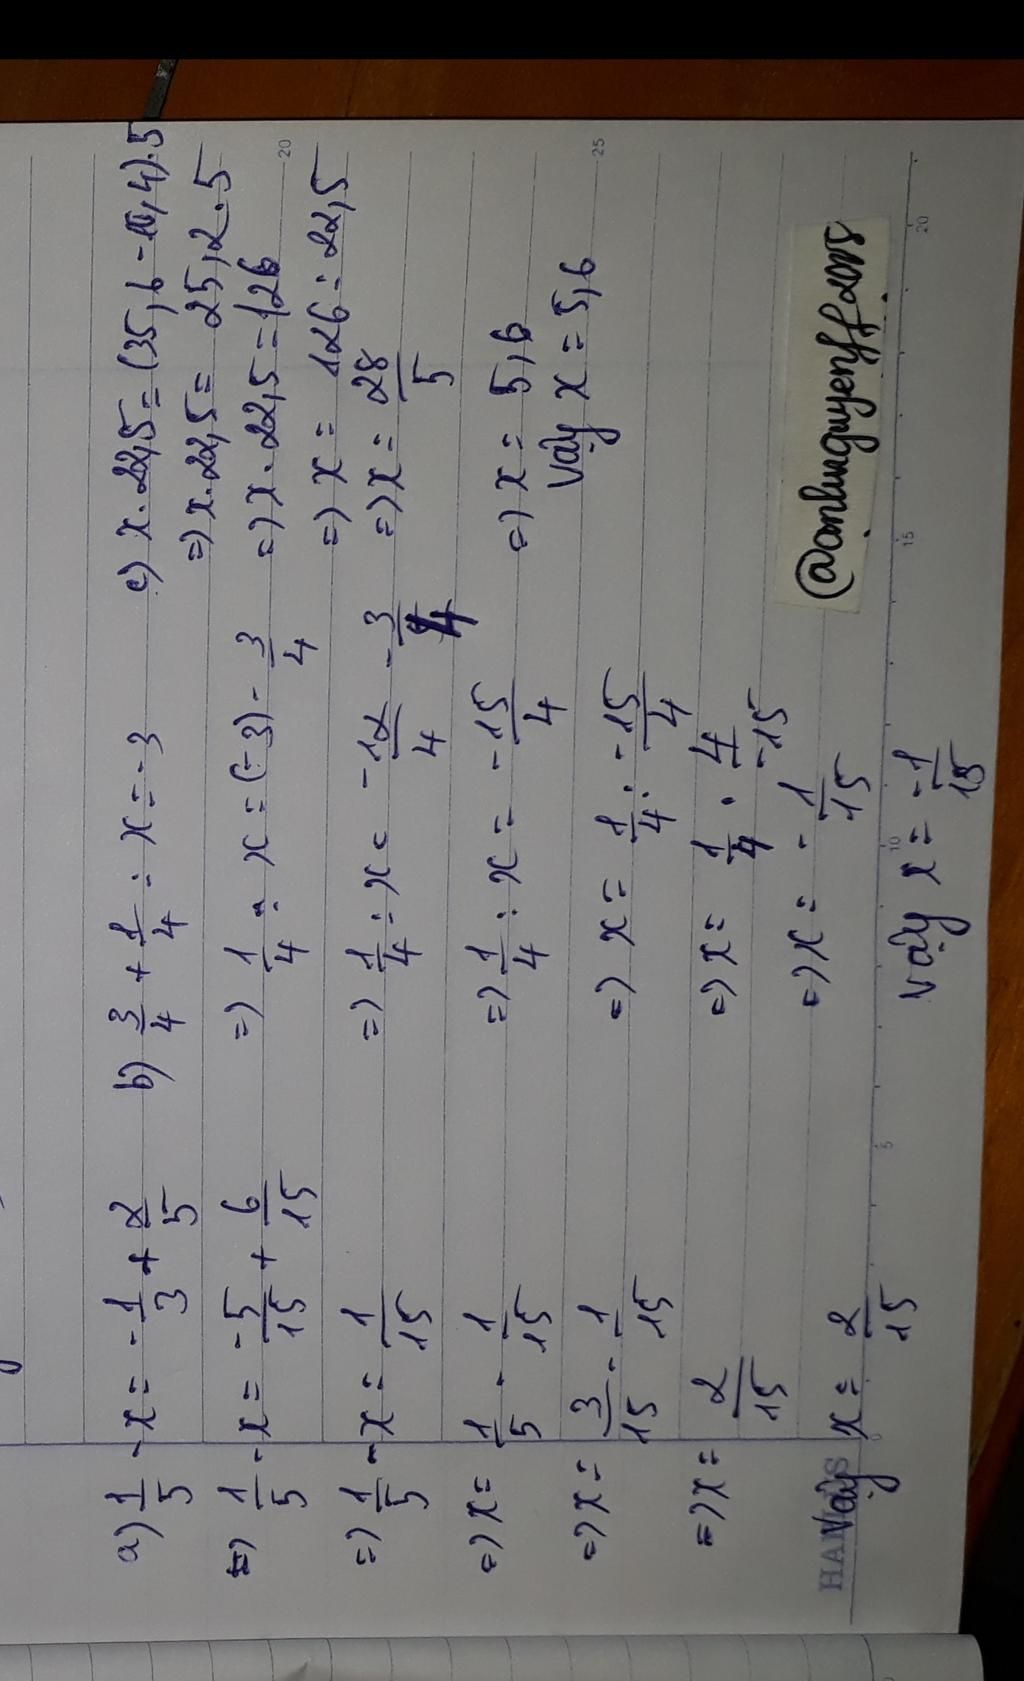 a) 1/5 - x = -1/3 + 2/5
=) 1/5 - x = -5/15 + 6/15
=) 1/5 - x = 1/15
=) x = 1/5 - 1/15
=) x = 3/15 - 1/15
=) x = 2/15
Vậy x = 2/15
b) 3/4 + 1/4 : x = -3
=) 1/4 : x = (-3) - 3/4
=) 1/4 : x = -12/4 - 3/4
=) 1/4 : x = -15/4
=) x = 1/4 : -15/4
=) x = 1/4 . 4/-15
=) x = -1/15
Vậy x = -1/15
c) x . 22,5 = (35,6 - 10,4).5
=) x . 22,5 = 25,2 . 5
=) x . 22,5 = 126
=) x = 126 : 22,5
=) x = 28/5
=) x = 5,6
Vậy x = 5,6
HAN S
5
10
15
20
20
25